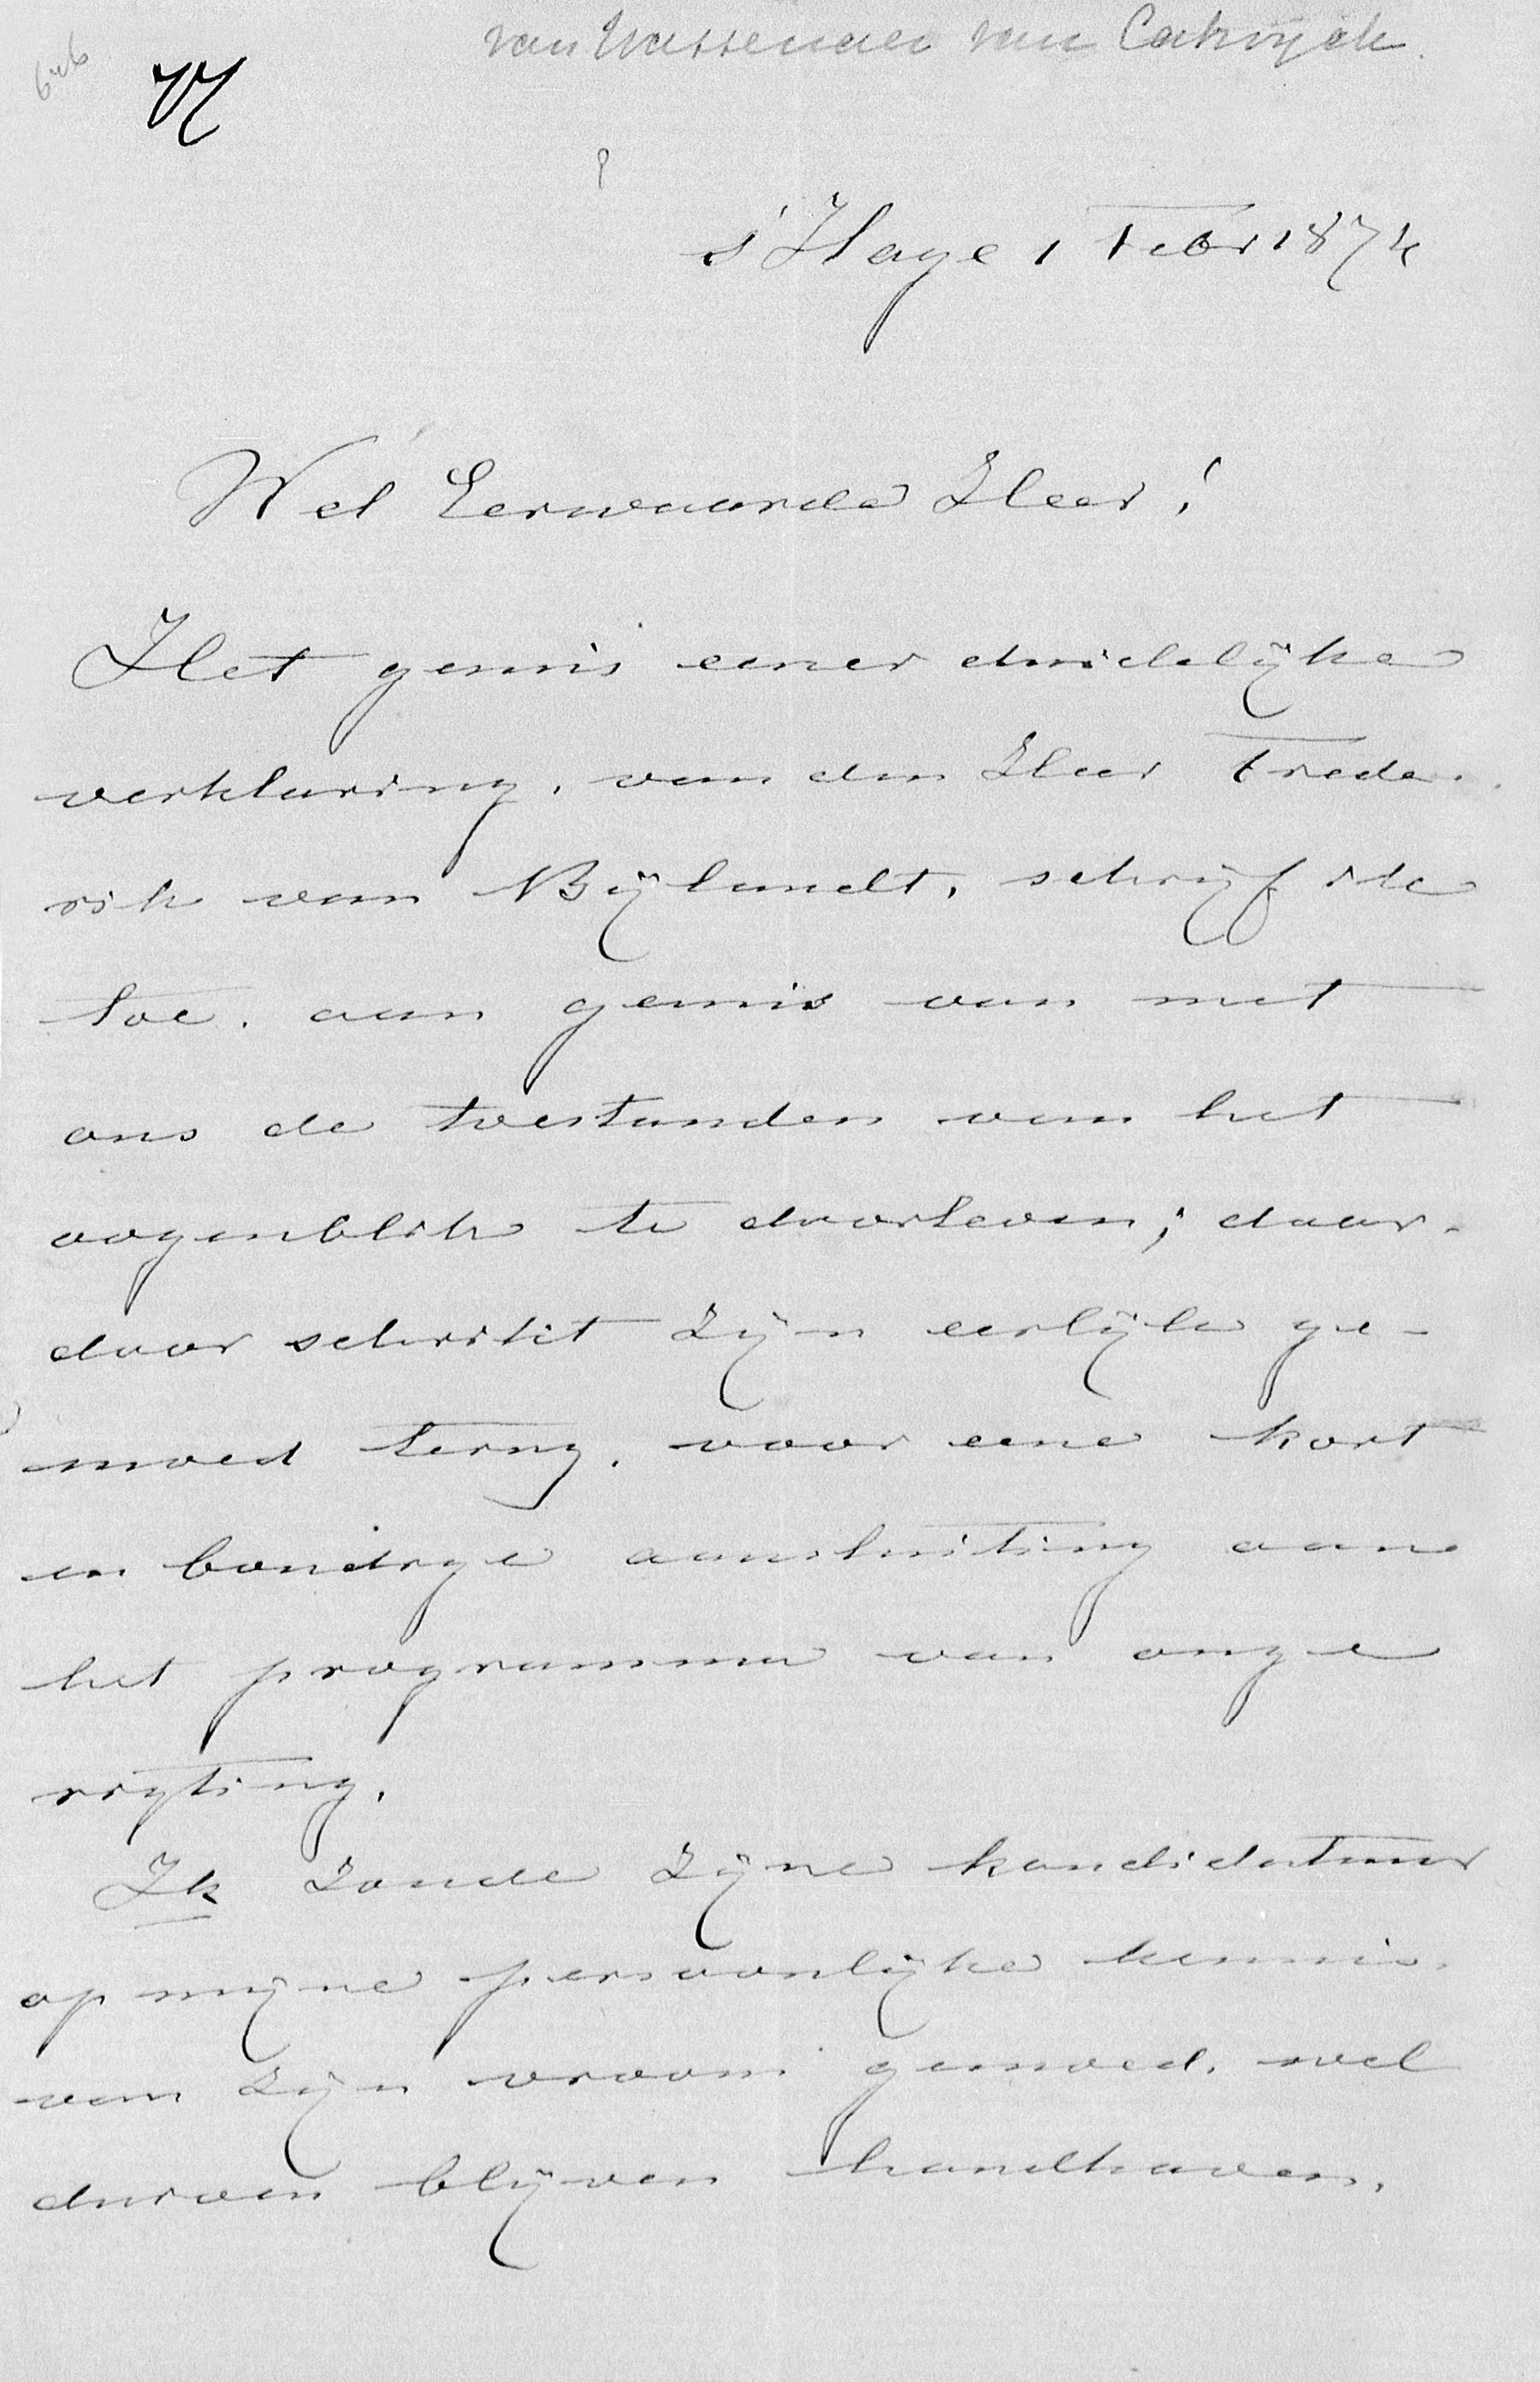 van Wassenaer van Catwijck.
s'Hage 1 Febr 1874
Wel Eerwaarde Heer!
Het gemis eener duidelijke
verklaring, van den Heer Frede-
rik van Bijlandt, schrijf ik
toe, aan gemis van met
ons de toestanden van het
oogenblik te doorleven; daar-
door schrikt zijn eerlijk ge-
moed terug, voor eene kort
en bondige aansluiting aan
het programma van onze
rigting.
Ik zoude zijne kandidatuur
op mijne persoonlijke kennis,
van zijn vroom gemoed, wel
durven blijven handhaven.